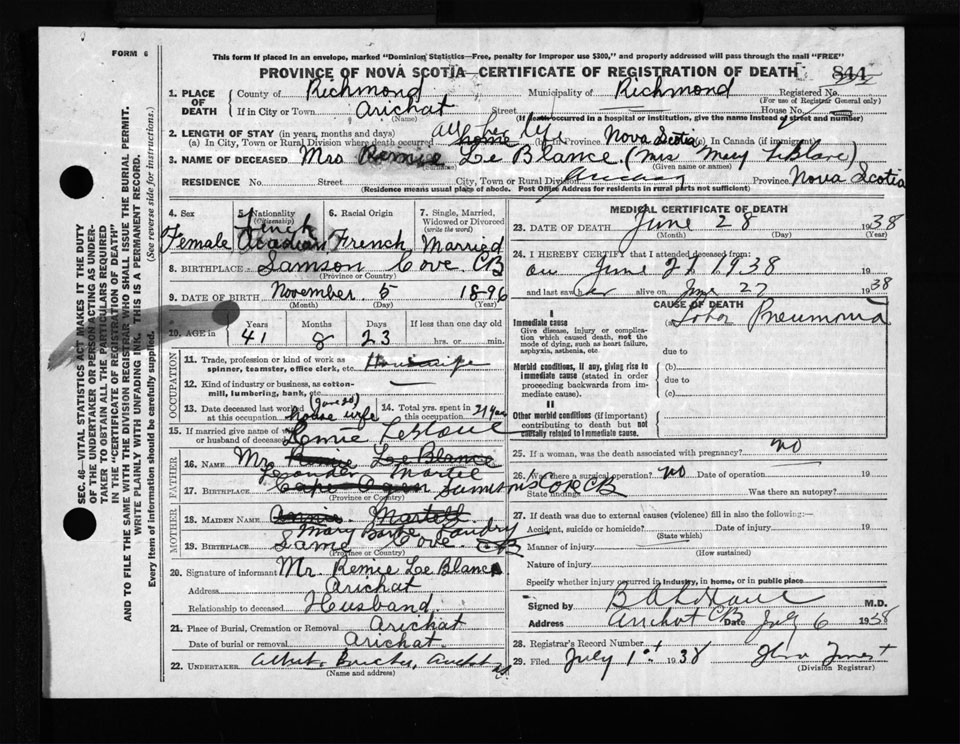 FORM 6
This form if placed in an envelope, marked "Dominion Statistics—Free, penalty for improper use $300," and properly addressed will pass through the mail "FREE"
PROVINCE OF NOVA SCOTIA—CERTIFICATE OF REGISTRATION OF DEATH 844
1. PLACE OF DEATH County of Richmond Municipality of Richmond Registered No.
(For use of Registrar General only)
If in City or Town Arichat Street House No.
(Name) (If death occurred in a hospital or institution, give the name instead of street and number)
2. LENGTH OF STAY (in years, months and days) all her life
(a) In City, Town or Rural Division where death occurred home (b) in Province Nova Scotia (c) In Canada (if immigrant)
3. NAME OF DECEASED Mrs Remie Le Blance (Mrs Mary LeBlanc)
(Surname) (Given name or names)
RESIDENCE No. Street City, Town or Rural Division Arichat Province Nova Scotia
(Residence means usual place of abode. Post Office Address for residents in rural parts not sufficient)
4. Sex Female
5. Nationality (Citizenship) French Acadian
6. Racial Origin French
7. Single, Married, Widowed or Divorced (write the word) Married
8. BIRTHPLACE Samson Cove CB
(Province or Country)
9. DATE OF BIRTH November 5 1896
(Month) (Day) (Year)
10. AGE in Years Months Days If less than one day old
41 8 23 hrs. or min.
OCCUPATION
11. Trade, profession or kind of work as spinner, teamster, office clerk, etc. Housewife
12. Kind of industry or business, as cotton-mill, lumbering, bank, etc. —
13. Date deceased last worked at this occupation (June 26) house wife
14. Total yrs. spent in this occupation 21 Years
15. If married give name of wife or husband of deceased Remie LeBlanc
FATHER
16. NAME Mr Remie Le Blance
Leander Martell
17. BIRTHPLACE Samson Cove CB
(Province or Country)
MOTHER
18. MAIDEN NAME Annie Martell
Mary Landry
19. BIRTHPLACE Same Cove CB
(Province or Country)
20. Signature of informant Mr Remie Le Blance
Address Arichat
Relationship to deceased Husband
21. Place of Burial, Cremation or Removal Arichat
Date of burial or removal Arichat
22. UNDERTAKER Albert
(Name and address)
MEDICAL CERTIFICATE OF DEATH
23. DATE OF DEATH June 28 1938
(Month) (Day) (Year)
24. I HEREBY CERTIFY that I attended deceased from:
on June 27 1938
and last saw her alive on June 27 1938
CAUSE OF DEATH
I
Immediate cause Lobar Pneumonia
Give disease, injury or complication which caused death, not the mode of dying, such as heart failure, asphyxia, asthenia, etc.
due to
Morbid conditions, if any, giving rise to immediate cause (stated in order proceeding backwards from immediate cause)
(b)
due to
(c)
II
Other morbid conditions (if important) contributing to death but not causally related to immediate cause.
25. If a woman, was the death associated with pregnancy? no
26. Was there a surgical operation? no Date of operation 19
State findings Was there an autopsy?
27. If death was due to external causes (violence) fill in also the following:—
Accident, suicide or homicide? Date of injury 19
(State which)
Manner of injury
(How sustained)
Nature of injury
Specify whether injury occurred in industry, in home, or in public place
Signed by M.D.
Address Arichat CB Date July 6 1938
28. Registrar's Record Number
29. Filed July 1st 1938
(Division Registrar)
SEC. 46—VITAL STATISTICS ACT MAKES IT THE DUTY
OF THE UNDERTAKER OR PERSON ACTING AS UNDER-
TAKER TO OBTAIN ALL THE PARTICULARS REQUIRED
IN THE "CERTIFICATE OF REGISTRATION OF DEATH"
AND TO FILE THE SAME WITH THE DIVISION REGISTRAR WHO SHALL ISSUE THE BURIAL PERMIT.
WRITE PLAINLY WITH UNFADING INK. THIS IS A PERMANENT RECORD.
Every item of information should be carefully supplied. (See reverse side for instructions.)